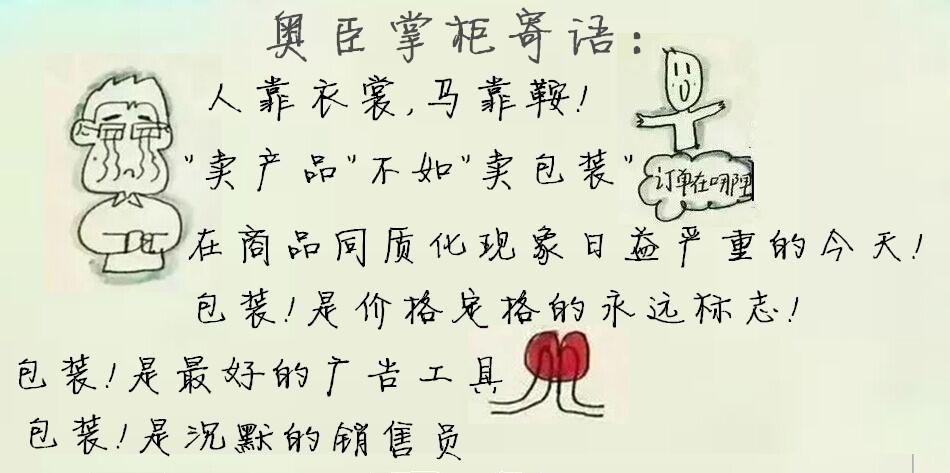 奥臣掌柜寄语:
人靠衣裳,马靠鞍!
"卖产品"不如"卖包装"
订单在哪里
在商品同质化现象日益严重的今天!
包装!是价格定格的永远标志!
包装!是最好的广告工具
包装!是沉默的销售员